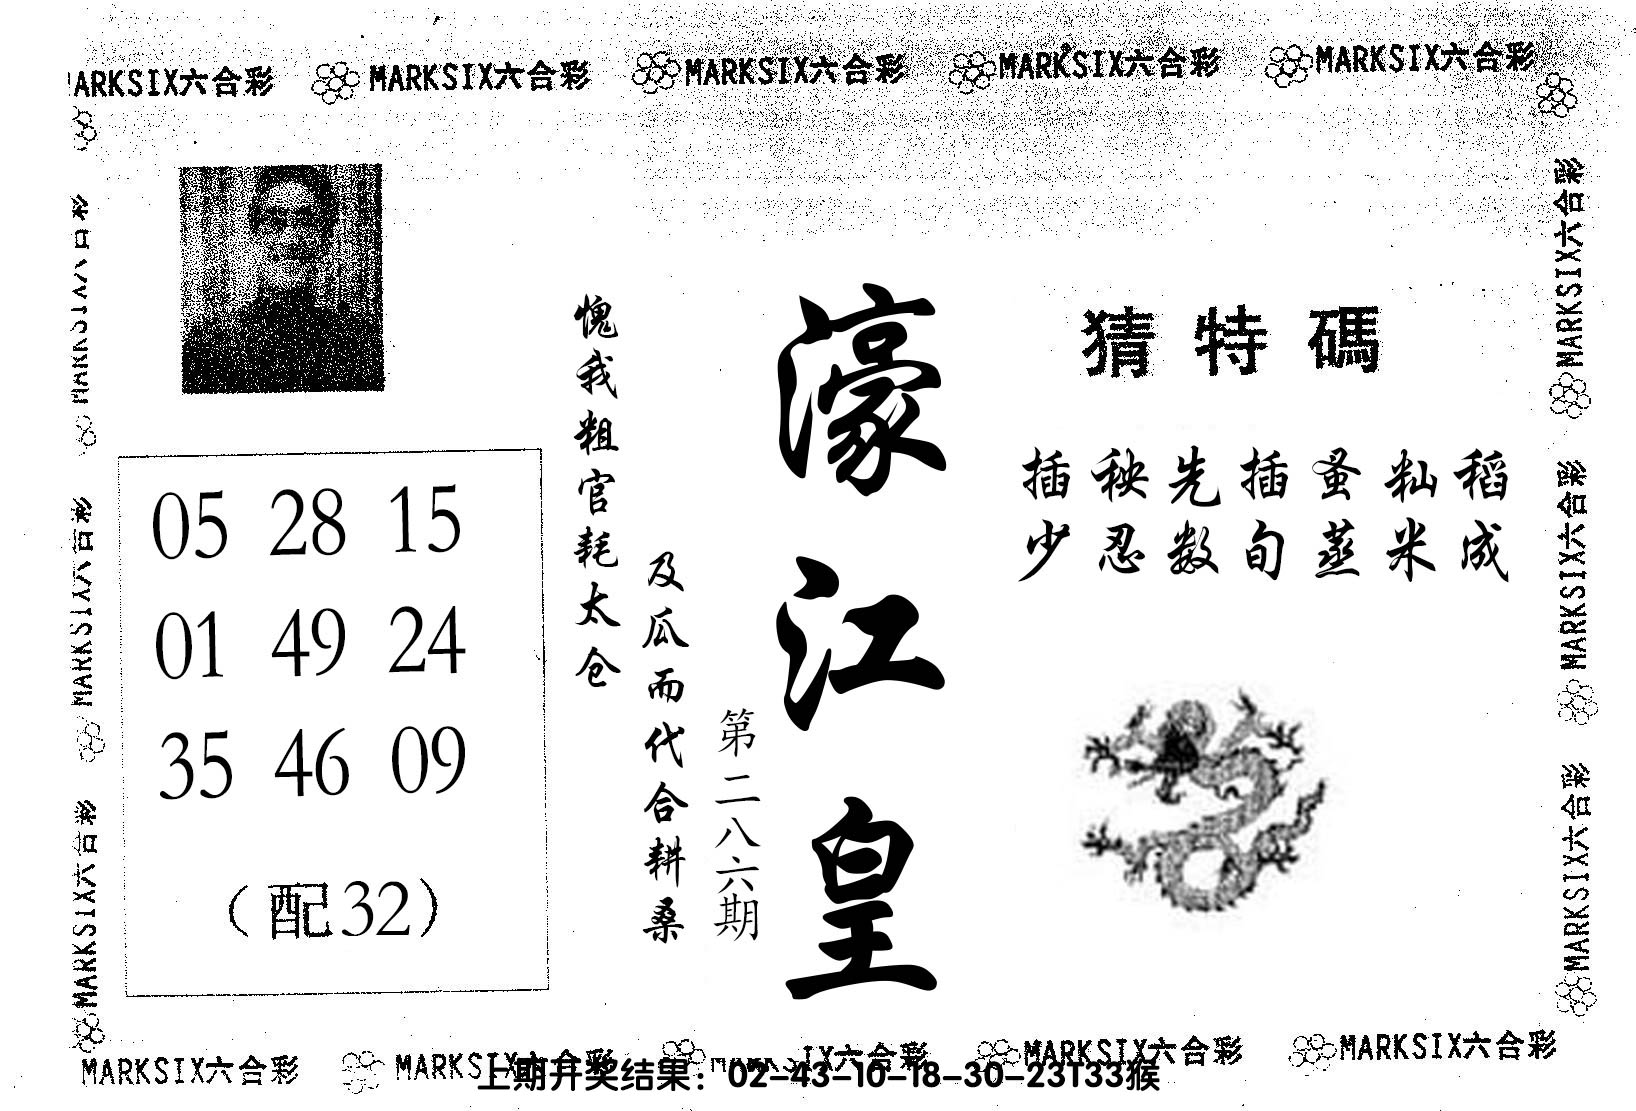 MARKSIX六合彩 MARKSIX六合彩 MARKSIX六合彩 MARKSIX六合彩 MARKSIX六合彩
MARKSIX六合彩
MARKSIX六合彩
MARKSIX六合彩
猜特碼
插秧先插蚤籼稻
少忍数旬蒸米成
濠江皇
第二八六期
愧我粗官耗太仓
及瓜而代合耕桑
05 28 15
01 49 24
35 46 09
（配32）
MARKSIX六合彩
MARKSIX六合彩
MARKSIX六合彩
MARKSIX六合彩 MARKSIX六合彩 IX六合彩 MARKSIX六合彩 MARKSIX六合彩
上期开奖结果：02-43-10-18-30-23T33猴